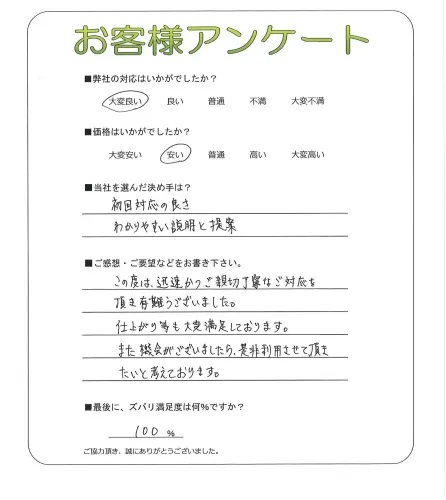 お客様アンケート
■弊社の対応はいかがでしたか？
大変良い 良い 普通 不満 大変不満
■価格はいかがでしたか？
大変安い 安い 普通 高い 大変高い
■当社を選んだ決め手は？
初回対応の良さ
わかりやすい説明と提案
■ご感想・ご要望などをお書き下さい。
この度は、迅速かつご親切丁寧なご対応を
頂き有難うございました。
仕上がり等も大変満足しております。
また機会がございましたら、是非利用させて頂き
たいと考えております。
■最後に、ズバリ満足度は何%ですか？
100 %
ご協力頂き、誠にありがとうございました。